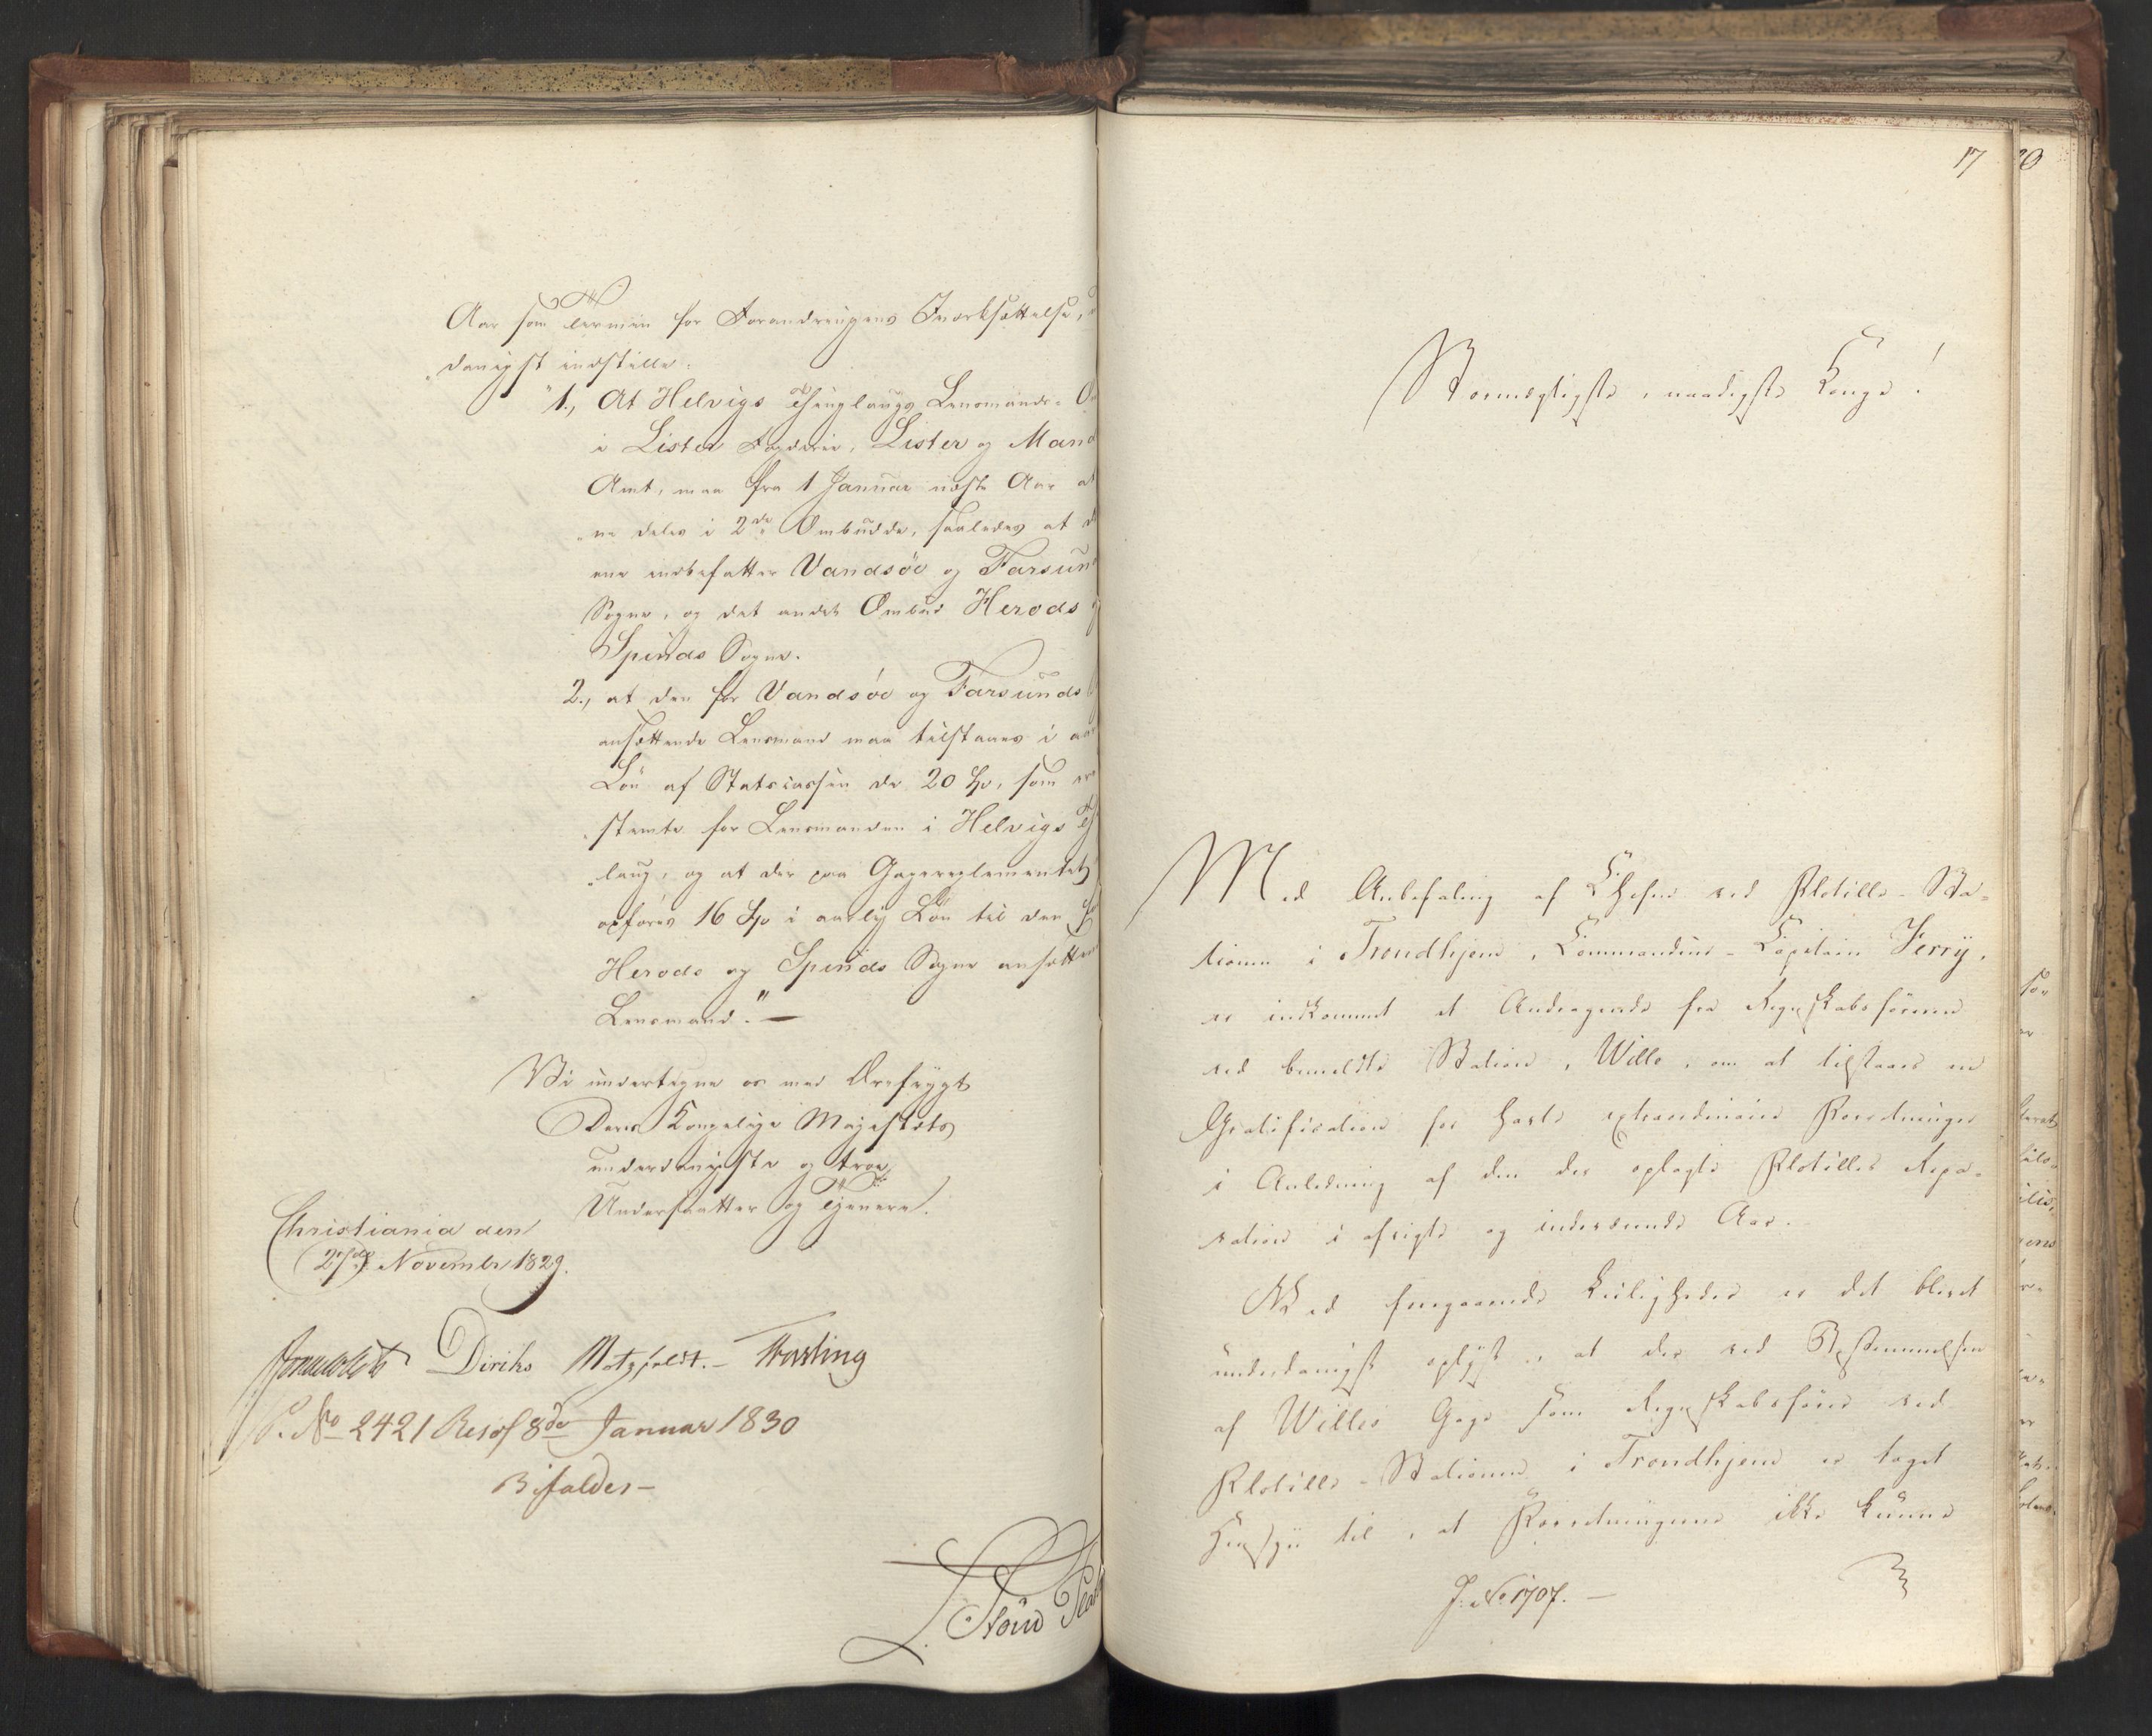 Aar som Termin for Forandringens Iværksættelse,
"danigst indstille:
"1., At Helvigs Thinglaugs Lensmands-
i Lister Fogderie, Lister og Mand
Amt, maa fra 1 Januar næste Aar at
"ne deles i 2de Ombudde, saaledes at d
ene indbefatter Vandsöe og Farsund
Sogne, og det andet Ombud Herods
Spinds Sogne.
2., at den for Vandsöe og Farsunds
ansættende Lensmand maa tilstaaes i aar
Lön af Statscassen de 20 Sp, som er
"stemte for Lensmanden i Helvigs
"laug, og at der paa Gagereglementet
opföres 16 Sp i aarlig Lön til den
Herods og Spinds Sogne ansætten
Lensmand." —
Vi undertegne os med Ærefrygt
Deres Kongelige Majestæts
underdanigste og troe
Undersaatter og Tjenere.
Christiania den
27de November 1829.
Diriks Motzfeldt. Fasting
P. No 2421 Resol 8de Januar 1830
Bifaldes —
L. Stoud Plat
17
Stormægtigste, naadigste Konge!
Med Anbefaling af Chefen ved Flotille-Sta-
tionen i Trondhjem, Commandeur-Capitain Ferry,
er indkommet et Andragende fra Regnskabsföreren
ved bemeldte Station, Wille, om at tilstaaes en
Gratification for havte extraordinaire Forretninger
i Anledning af den der oplagte Flotilles Repa-
ration i afvigte og indeværende Aar.
Ved foregaaende Leiligheder er det blevet
underdanigst oplyst, at der ved Bestemmelsen
af Willes Gage som Regnskabsförer ved
Flotille-Stationen i Trondhjem er taget
Hensyn til, at Forretningerne ikke kunne
J. No 1707. —